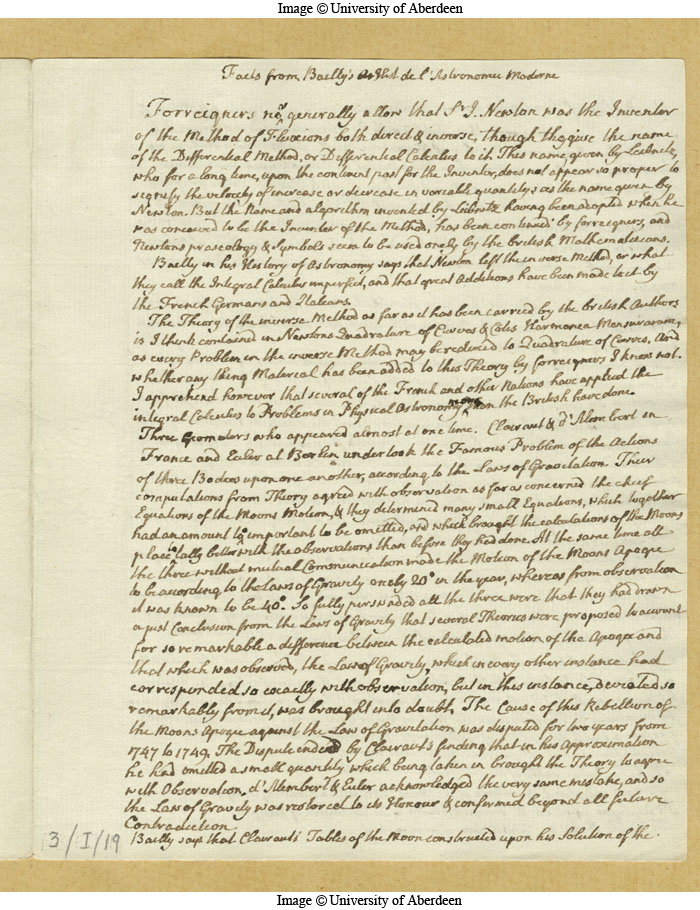 Image © University of Aberdeen
Facts from Bailly's Hist de l'Astronomie Moderne
Forreigners now generally allow that Sr I. Newton was the Inventor
of the Method of Fluxions both direct & inverse, though they give the name
of the Differential Method, or Differential Calculus to it. This name given by Leibnitz,
who for a long time, upon the continent past for the Inventor, does not appear so proper to
signify the velocity of increase or decrease in variable quantitys as the name given by
Newton. But the Name and algorithm invented by Leibnitz having been adopted when he
was conceived to be the Inventer of the Method, has been continued by forreigners, and
Newtons praseology & Symbols seem to be used onely by the british Mathematicians.
Bailly in his History of Astronomy says that Newton left the inverse Method, or what
they call the Integral Calculus imperfect, and that great Additions have been made to it by
the French Germans and Italians.
The Theory of the inverse Method as far as it has been carried by the british Authors
is I think contained in Newtons Quadrature of Curves & Cotes Harmonia Mensurarum,
as every Problem in the inverse Method may be reduced to Quadrature of Curves. And
whether any thing Material has been added to this Theory by forreigners I know not.
I apprehend however that several of the French and other Nations have applied the
integral Calculus to Problems in Physical Astronomy more than the British have done.
Three Geometers who appeared almost at one time. Clairaut & d'Alembert in
France and Euler at Berlin undertook the Famous Problem of the Actions
of three Bodies upon one another, according to the Laws of Gravitation. Their
computations from Theory agreed with observation as far as concerned the chief
Equations of the Moons Motion, & they determined many small Equations, which together
had an amount too important to be omitted, and which brought the calculations of the Moons
place to tally better with the observations than before they had done. At the same time all
the three without mutual Communication made the Motion of the Moons Apogee
to be according to the laws of Gravity onely 20° in the year, whereas from observation
it was known to be 40°. So fully perswaded all the three were that they had drawn
a just Conclusion from the Laws of Gravity that several Theories were proposed to account
for so remarkable a difference between the calculated motion of the Apogee and
that which was observed, the Law of Gravity, which in every other instance had
corresponded so exactly with observation, but in this instance, deviated so
remarkably from it, was brought into doubt. The Cause of this Rebellion of
the Moons Apogee against the Law of Gravitation was disputed for two years from
1747 to 1749. The Dispute ended by Clairaut's finding that in his Approximation
he had omitted a small quantity which being taken in brought the Theory to agree
with Observation. d'Alembert & Euler acknowledged the very same mistake, and so
the Law of Gravity was restored to its Honour & confirmed beyond all future
Contradiction
Bailly says that Clairauts Tables of the Moon constructed upon his Solution of the
3/I/19
Image © University of Aberdeen